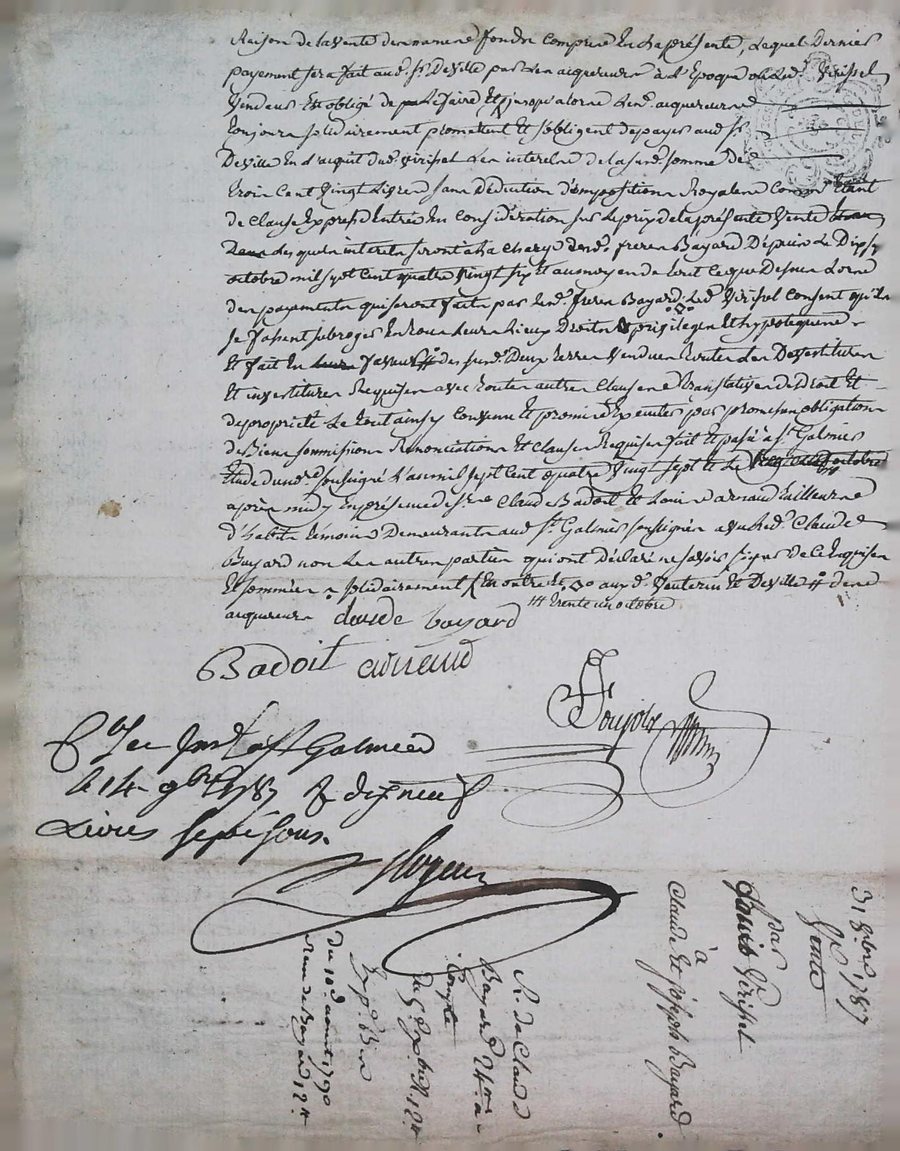 Raison de la vente des mêmes fonds compris En sa présente, Lequel Dernier
payement sera fait aud. Sr. Deville par les acquereurs à L'Epoque où Led. Virissel
Vendeur Est obligé de Le faire Et jusqu'alors Lesd. acquereurs
toujours solidairement promettent Et s'obligent de payer aud Sr
Deville En l'acquit dud. Virissel Les interets de lasusd. somme de
trois Cent Vingt Livres sans Déduction d'impositions Royales Comme Etant
de Clause Expresse Entrée En Considération sur Le prix de la présente Vente
desquels interets seront à la Charge desd. freres Bayard Depuis Le
octobre mil sept Cent quatre Vingt six Et au moyen de tout Ce que Dessus Lors
des payements qui seront faits par lesd. freres Bayard Led. Virissel Consent qu'ils
se fassent subroger En tous Leurs Lieux Droits privileges Et hypoteques
Et fait En faveur des susd. Deux Terres Vendues toutes Les Devestitures
Et investitures Requises avec toutes autres Clauses translatives de Droit Et
de proprieté Le tout ainsy Convenu Et promis Executer par promesses obligation
de Biens soumissions Renonciations Et Clauses Requises fait Et passé à St. Galmier
Etude du nore. soussigné L'an mil sept Cent quatre Vingt sept Et Le octobre
après midy En présence de Srs. Claude Badoit Et Louis arnaud tailleurs
d'habits témoins Demeurants aud St. Galmier soussignés avec Led. Claude
Bayard non Les autres parties qui ont Déclaré ne savoir signer de Ce Enquises
Et sommées solidairement Et outre Et aux d. Venterin Et Deville desd
acquereurs
trente un octobre
claude bayard
Badoit arnaud
Ponjols
St Galmier
Le 14 9bre 1787 R dix neuf
Livres sept sous.
31 8bre 1787
Vente
par
Louis Virissel
à
Claude Et Joseph Bayard
R. de Claude
Bayard 24tt à
Compte
du 10 aout 1790
reçu de Bayard 12tt